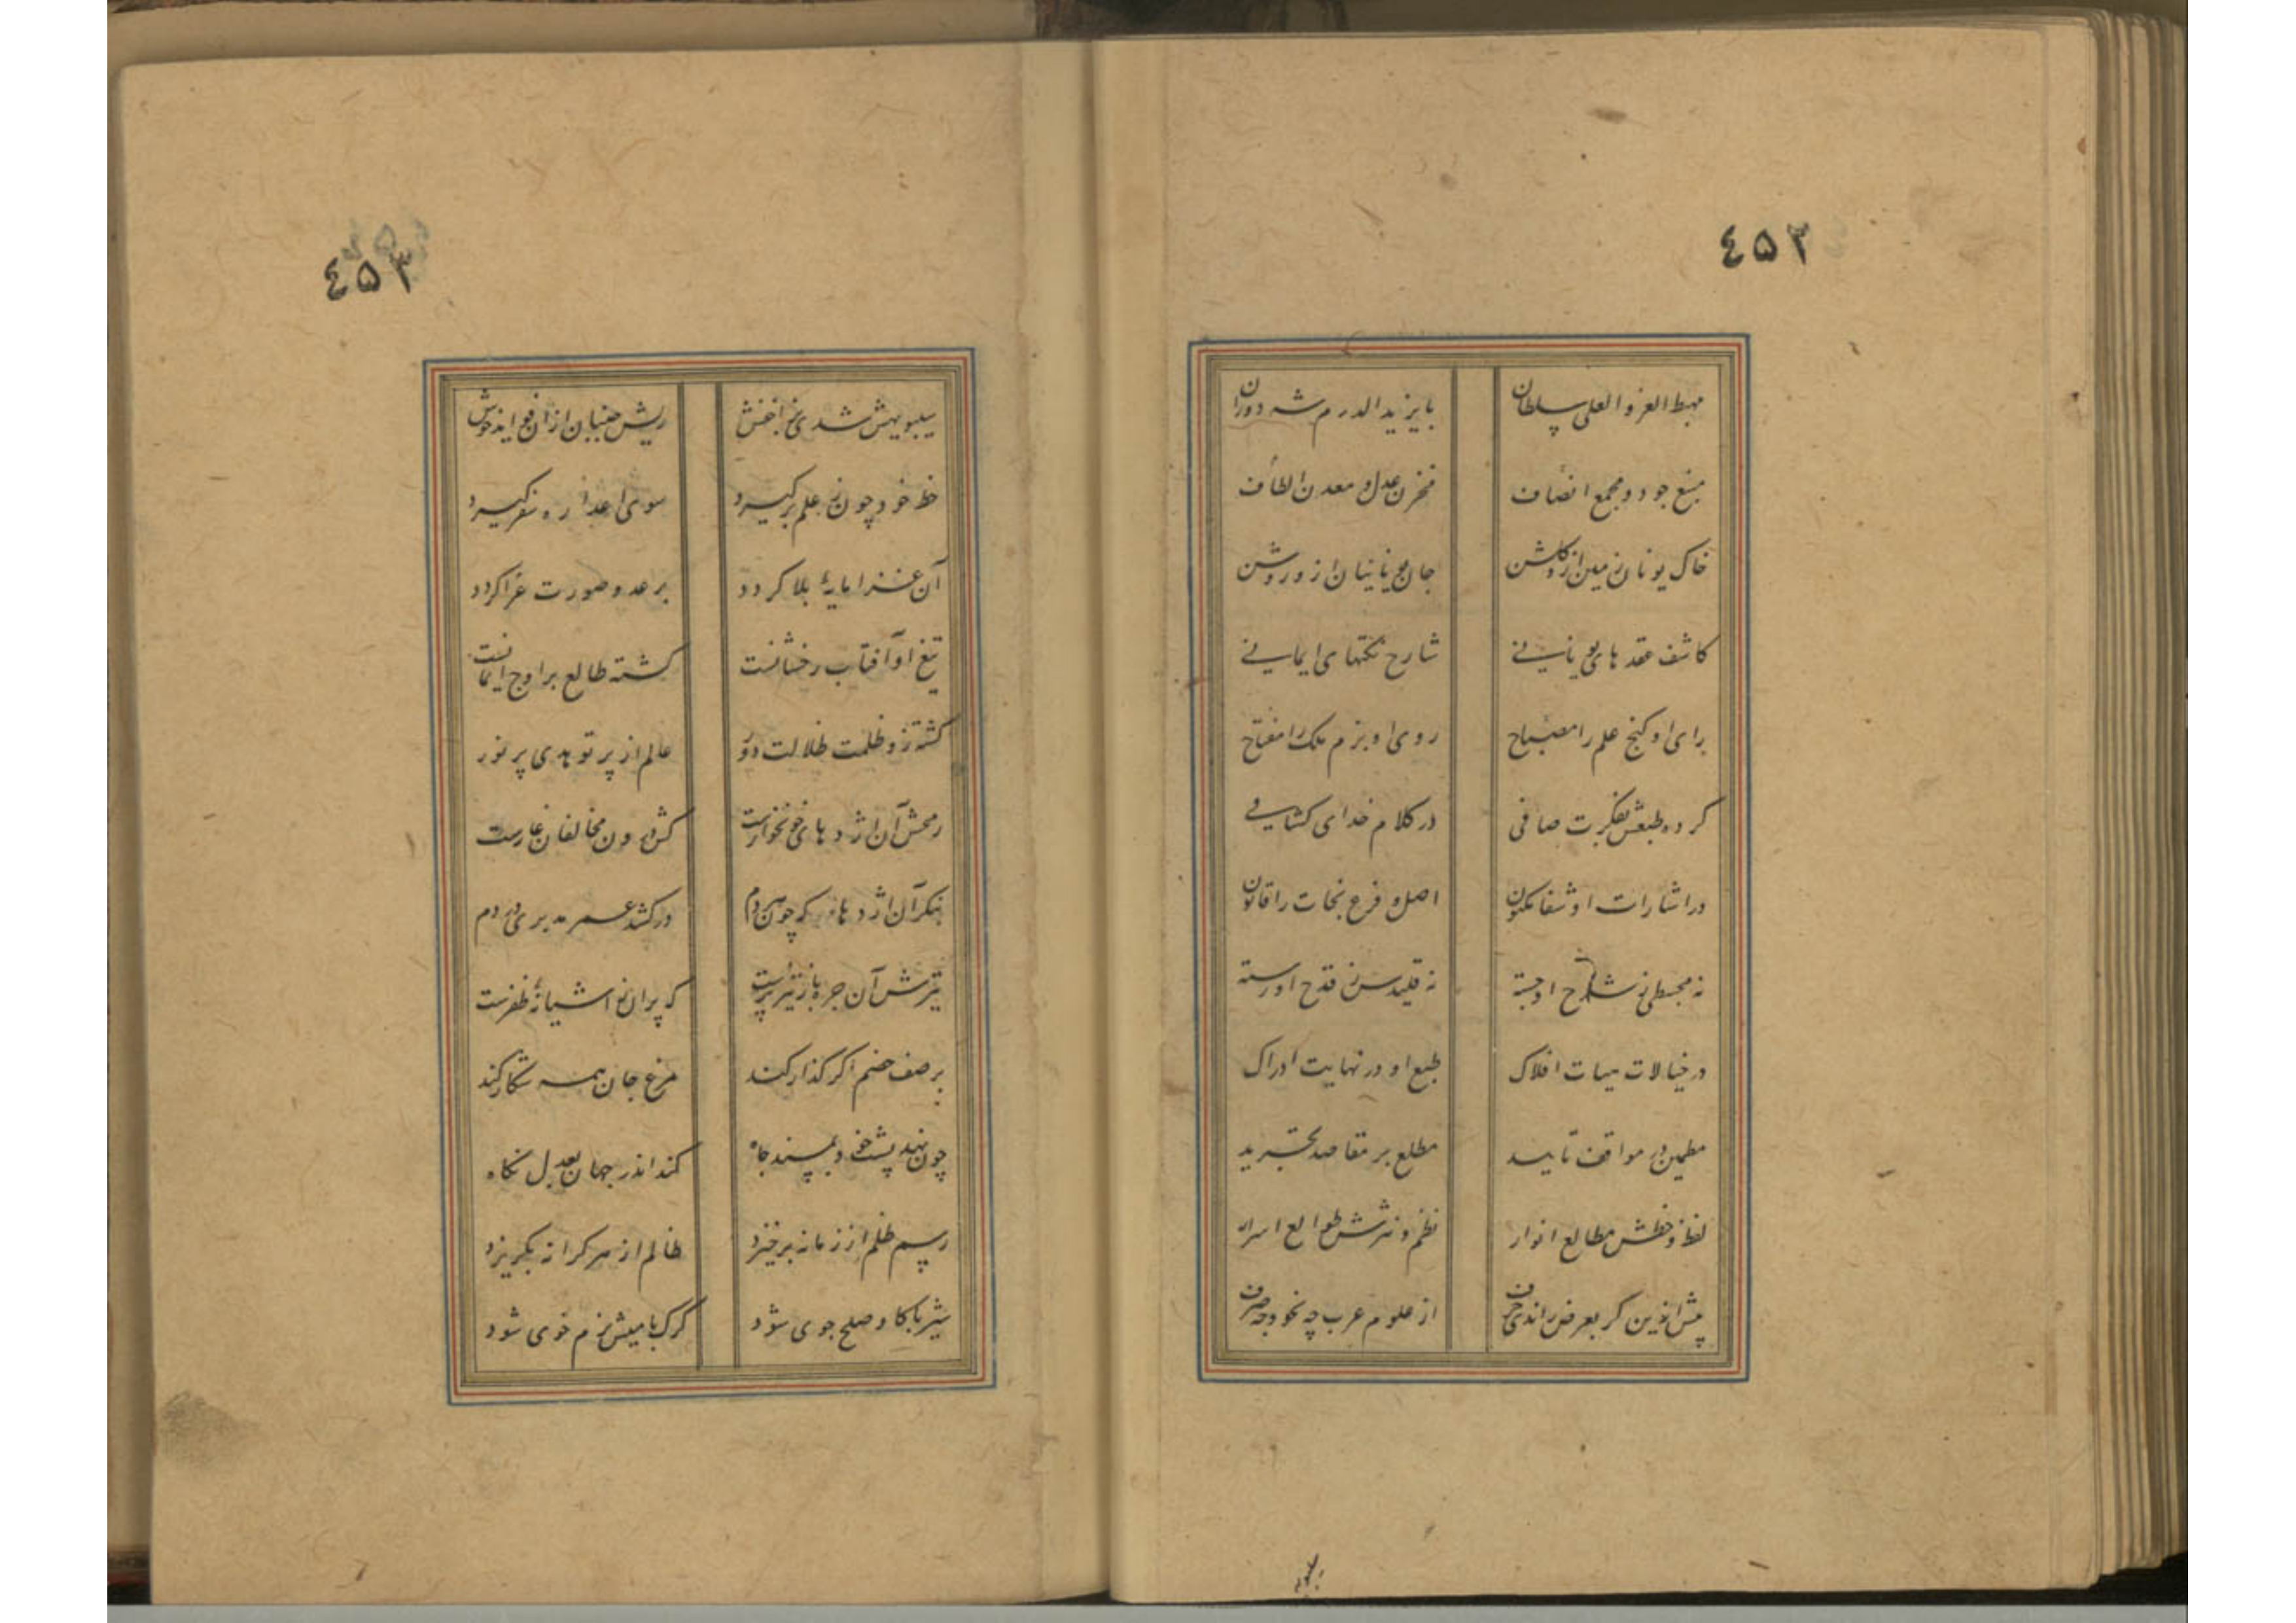 ٤٥٢
مهبط العز و العلی سلطان
بایزید الدرم شه دوران
منبع جود و مجمع انصاف
مخزن عدل و معدن الطاف
خاک یونان زمین ازو گلشن
جان یونانیان ازو روشن
کاشف عقدهای یونانی
شارح نکتهای ایمانی
رای او کنج علم را مصباح
روی او بزم ملک را مفتاح
کرده طبعش بفکرت صافی
در کلام خدای کشافی
در اشارات او شفا مکنون
اصل و فرع نجات را قانون
نه مجسطی ز شرح او جسته
نه قلیدس ز قدح او رسته
در خیالات هیات افلاک
طبع او در نهایت ادراک
مطمئن در مواقف تایید
مطلع بر مقاصد تجرید
لفظ و خطش مطالع انوار
نظم و نثرش طوالع اسرار
پیش ازین کر بعرض راندی حرف
از علوم عرب چه نحو و چه صرف
٤٥٣
سیبویهش شدی ز اخفش
ریش جنبان از ان فواید خوش
خط خود چون ز علم برکیرد
سوی اعدا ره سفر کیرد
آن غزا مایهٔ بلا کردد
بر عدو صورت عزا کردد
تیغ او آفتاب رخشانست
کشته طالع بر اوج ایمانست
کشته زو ظلمت ظلالت دور
عالم از پرتو هدی پر نور
رمحش آن اژدهای خونخوارست
کش درون مخالفان غارست
بنکر آن اژدها که چون هر دم
درکشد عمر مدبری در دم
تیرش آن جره باز تیزپرست
که پران ز آشیانهٔ ظفرست
بر صف خصم اکر کذار کند
مرغ جان همه شکار کند
چون نهد پشت خود بمسند جاه
کند اندر جهان بعدل نکاه
رسم ظلم از زمانه برخیزد
ظالم از هر کرانه بکریزد
شیر با کاو صلح جوی شود
کرک با میش نرم خوی شود